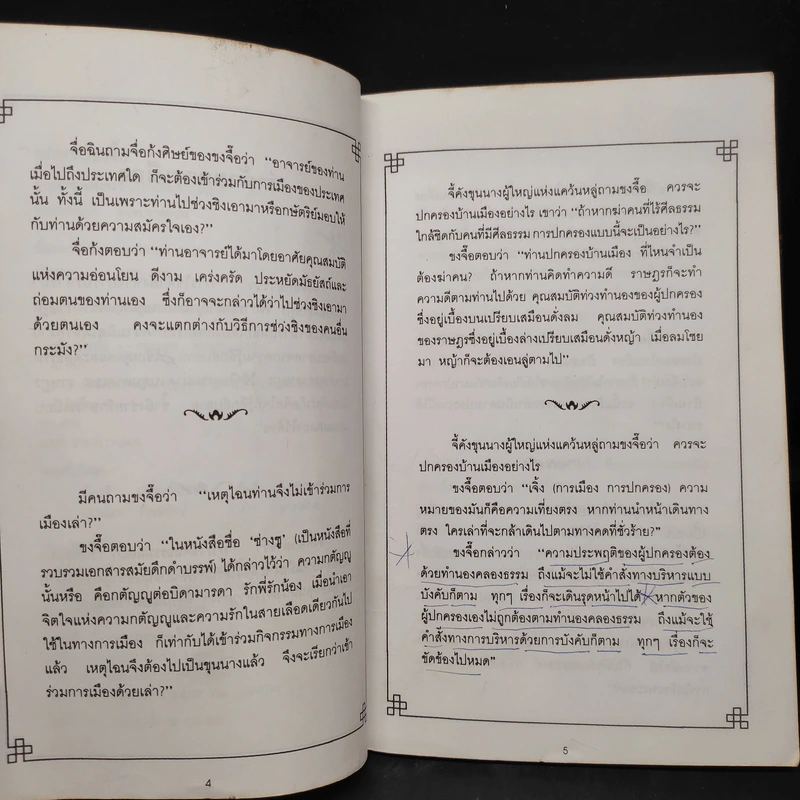 จื่อฉินถามจื่อกังศิษย์ของขงจื๊อว่า "อาจารย์ของท่าน
เมื่อไปถึงประเทศใด ก็จะต้องเข้าร่วมกับการเมืองของประเทศ
นั้น ทั้งนี้ เป็นเพราะท่านไปช่วงชิงเอามาหรือกษัตริย์มอบให้
กับท่านด้วยความสมัครใจเอง?"
จื่อกังตอบว่า "ท่านอาจารย์ได้มาโดยอาศัยคุณสมบัติ
แห่งความอ่อนโยน ดีงาม เคร่งครัด ประหยัดมัธยัสถ์และ
ถ่อมตนของท่านเอง ซึ่งก็อาจจะกล่าวได้ว่าไปช่วงชิงเอามา
ด้วยตนเอง คงจะแตกต่างกับวิธีการช่วงชิงของคนอื่น
กระมัง?"
มีคนถามขงจื๊อว่า "เหตุไฉนท่านจึงไม่เข้าร่วมการ
เมืองเล่า?"
ขงจื๊อตอบว่า "ในหนังสือชื่อ 'ซ่างซู' (เป็นหนังสือที่
รวบรวมเอกสารสมัยดึกดำบรรพ์) ได้กล่าวไว้ว่า ความกตัญญู
นั้นหรือ คือกตัญญูต่อบิดามารดา รักพี่รักน้อง เมื่อนำเอา
จิตใจแห่งความกตัญญูและความรักในสายเลือดเดียวกันไป
ใช้ในทางการเมือง ก็เท่ากับได้เข้าร่วมกิจกรรมทางการเมือง
แล้ว เหตุไฉนจึงต้องไปเป็นขุนนางแล้ว จึงจะเรียกว่าเข้า
ร่วมการเมืองด้วยเล่า?"
4
จี้คังขุนนางผู้ใหญ่แห่งแคว้นหลู่ถามขงจื๊อ ควรจะ
ปกครองบ้านเมืองอย่างไร เขาว่า "ถ้าหากฆ่าคนที่ไร้ศีลธรรม
ใกล้ชิดกับคนที่มีศีลธรรม การปกครองแบบนี้จะเป็นอย่างไร?"
ขงจื๊อตอบว่า "ท่านปกครองบ้านเมือง ที่ไหนจำเป็น
ต้องฆ่าคน? ถ้าหากท่านคิดทำความดี ราษฎรก็จะทำ
ความดีตามท่านไปด้วย คุณสมบัติท่วงทำนองของผู้ปกครอง
ซึ่งอยู่เบื้องบนเปรียบเสมือนดั่งลม คุณสมบัติท่วงทำนอง
ของราษฎรซึ่งอยู่เบื้องล่างเปรียบเสมือนดั่งหญ้า เมื่อลมโชย
มา หญ้าก็จะต้องเอนลู่ตามไป"
จี้คังขุนนางผู้ใหญ่แห่งแคว้นหลู่ถามขงจื๊อว่า ควรจะ
ปกครองบ้านเมืองอย่างไร
ขงจื๊อตอบว่า "เจิ้ง (การเมือง การปกครอง) ความ
หมายของมันก็คือความเที่ยงตรง หากท่านนำหน้าเดินทาง
ตรง ใครเล่าที่จะกล้าเดินไปตามทางคดที่ชั่วร้าย?"
ขงจื๊อกล่าวว่า "ความประพฤติของผู้ปกครองต้อง
ด้วยทำนองคลองธรรม ถึงแม้จะไม่ใช้คำสั่งทางบริหารแบบ
บังคับก็ตาม ทุกๆ เรื่องก็จะเดินรุดหน้าไปได้ หากตัวของ
ผู้ปกครองเองไม่ถูกต้องตามทำนองคลองธรรม ถึงแม้จะใช้
คำสั่งทางการบริหารด้วยการบังคับก็ตาม ทุกๆ เรื่องก็จะ
ขัดข้องไปหมด"
5